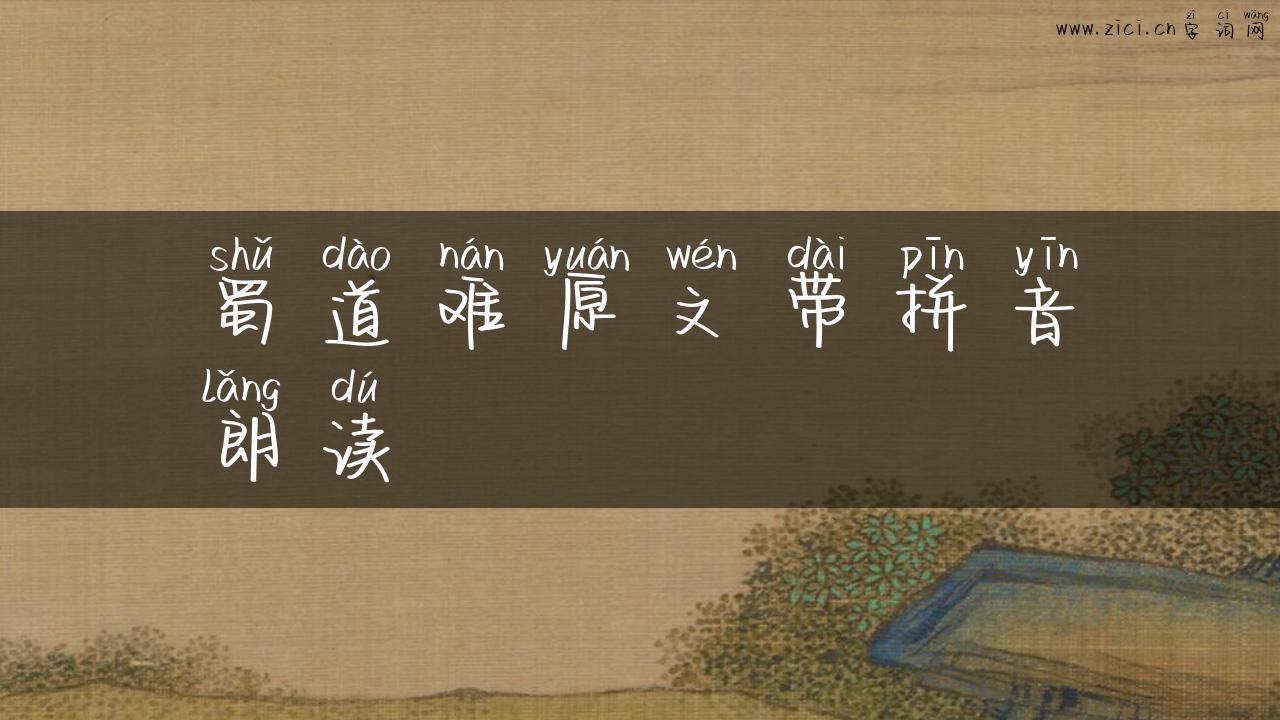 zì cí wǎng
www.zici.cn 字词网
shǔ dào nán yuán wén dài pīn yīn
蜀道难原文带拼音
lǎng dú
朗读